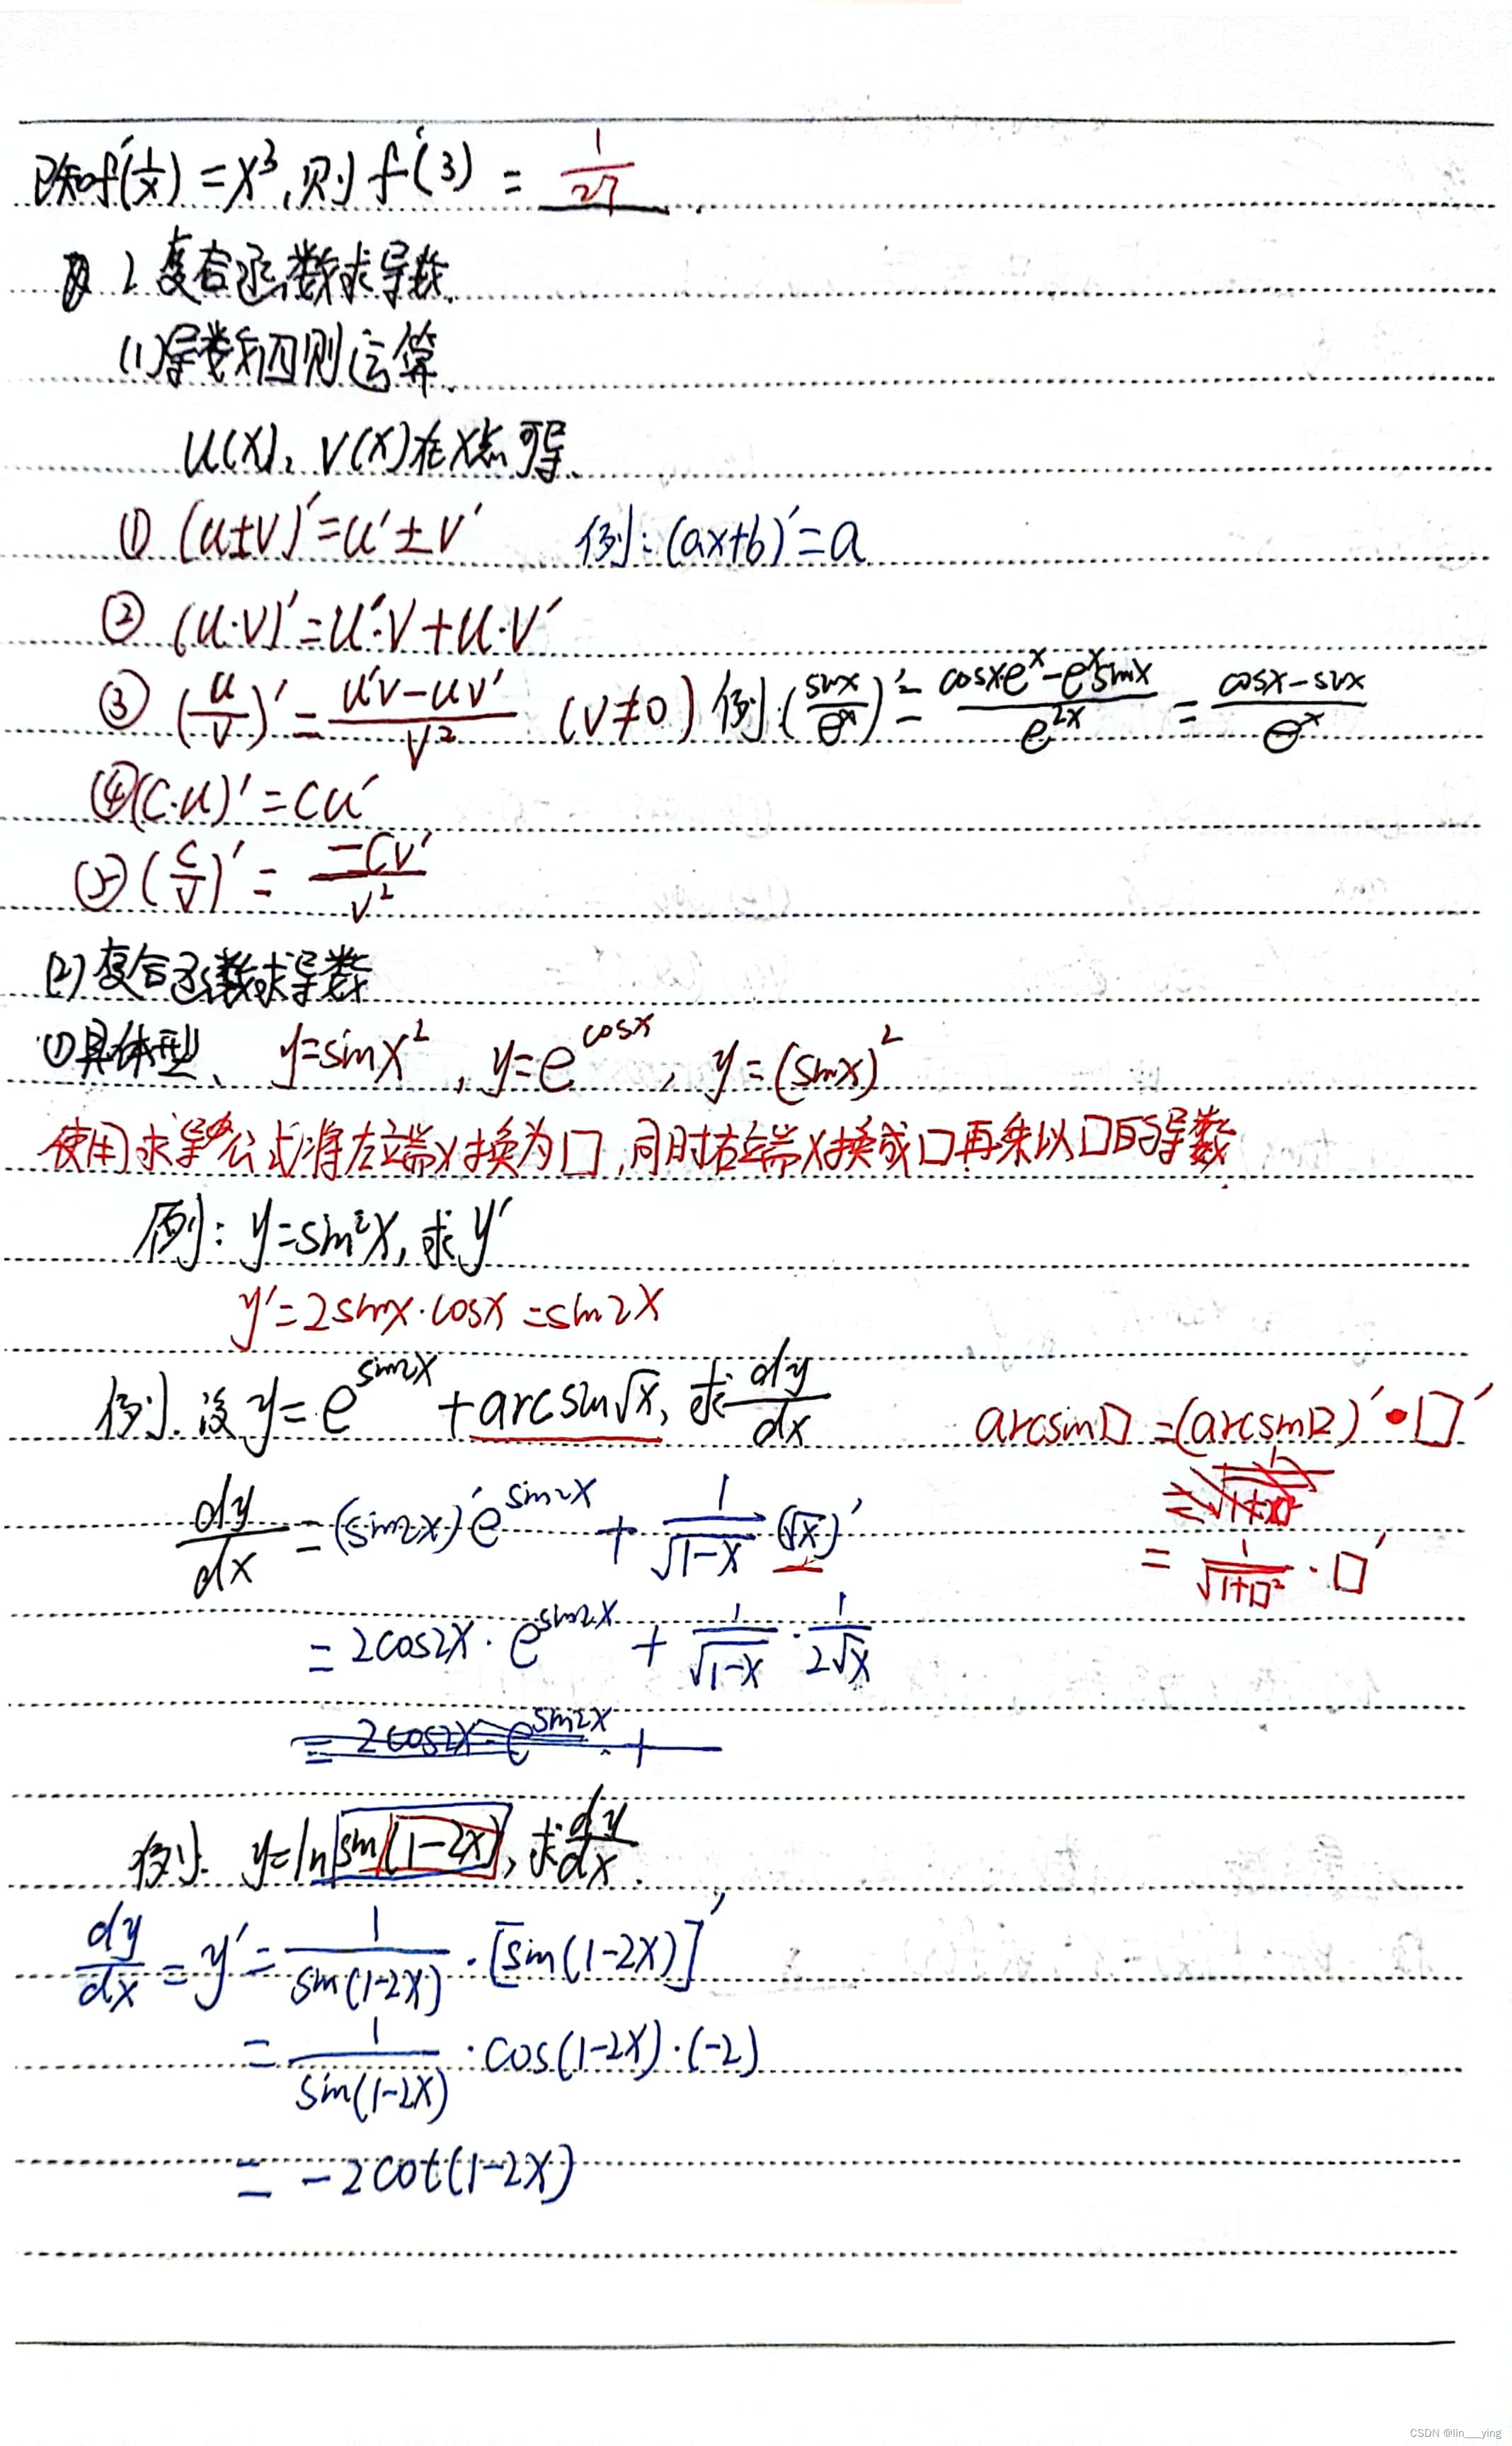 已知f′(1/x) = x³, 则 f′(3) = 1/27.
2 复合函数求导数.
(1)导数四则运算.
u(x), v(x)在x点可导.
① (u±v)′=u′±v′ 例: (ax+b)′=a
② (u·v)′=u′·v+u·v′
③ (u/v)′ = (u′v-uv′)/v² (v≠0) 例: (sinx/eˣ)′ = (cosx·eˣ-eˣsinx)/e²ˣ = (cosx-sinx)/eˣ
④(C·u)′=Cu′
⑤(C/v)′ = -Cv′/v²
(2)复合函数求导数
①具体型、 y=sinx², y=e^cosx, y=(sinx)²
使用求导公式将左端x换为口,同时右端x换成口再乘以口的导数
例: y=sin²x, 求y′
y′=2sinx·cosx=sin2x
例. 设 y=e^sin2x+arcsin√x, 求 dy/dx
arcsin□ =(arcsin□)′·□′
= 1/√(1+□²) · □′
dy/dx = (sin2x)′e^sin2x + 1/√(1-x) (√x)′
= 2cos2x · e^sin2x + 1/√(1-x) · 1/(2√x)
= 2cos2x · e^sin2x +
例. y=ln sin(1-2x), 求 dy/dx.
dy/dx = y′ = 1/sin(1-2x) · [sin(1-2x)]′
= 1/sin(1-2x) · cos(1-2x)·(-2)
= -2cot(1-2x)
CSDN @lin___ying